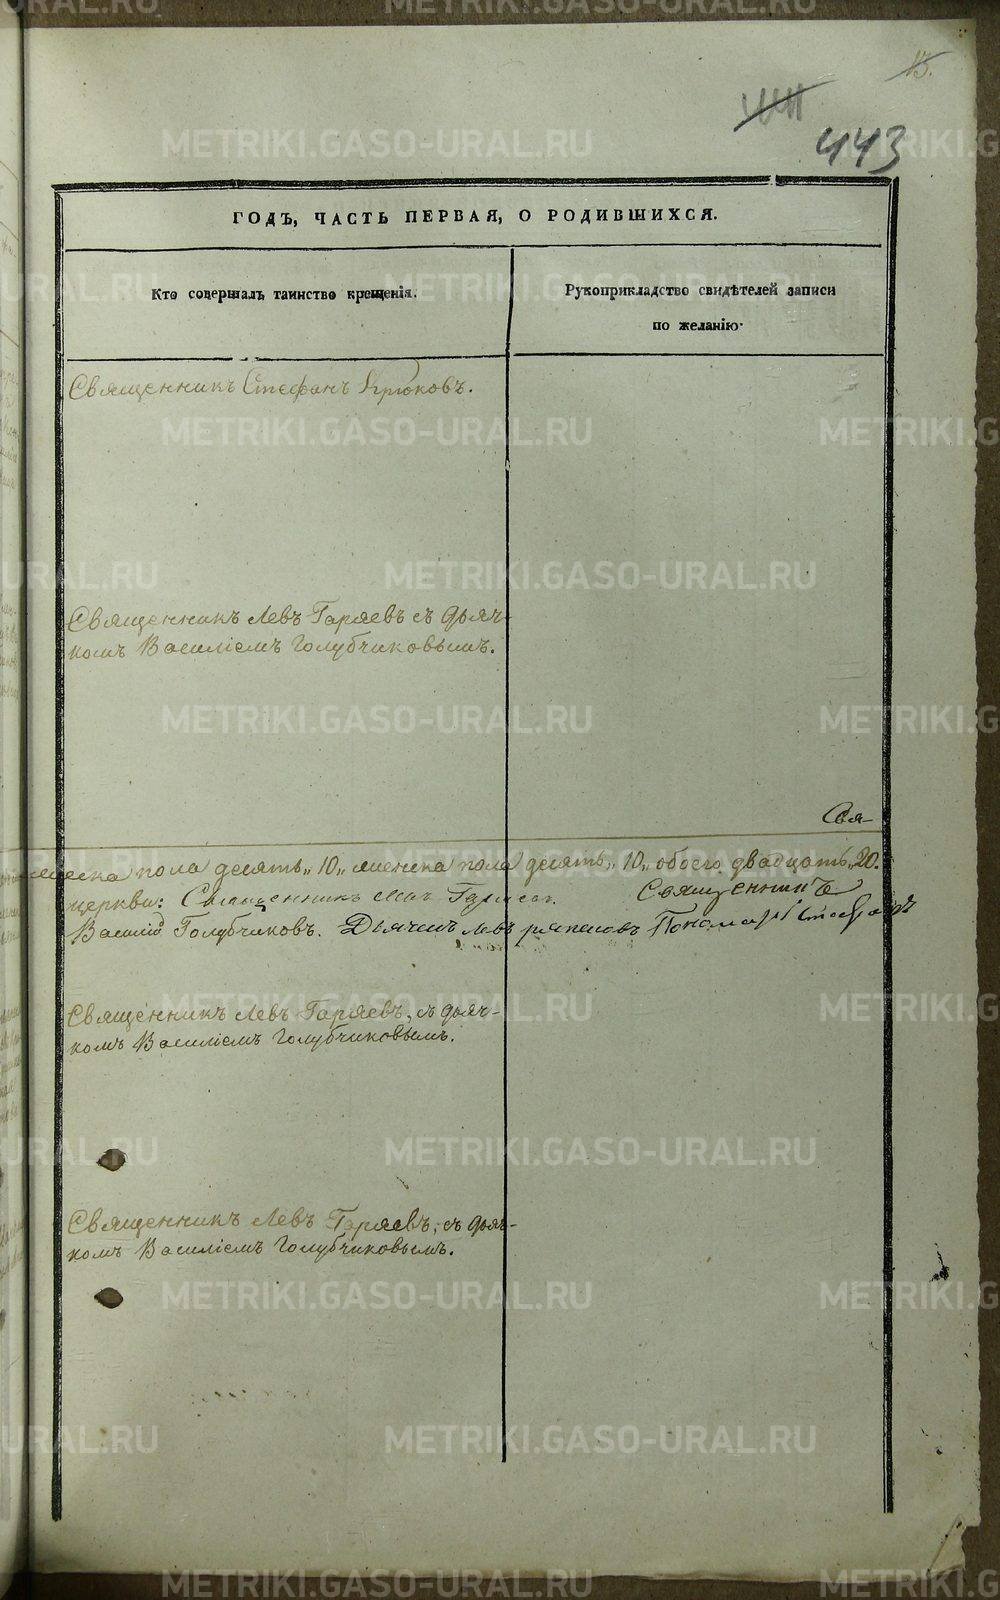 13.
443
ГОДЪ, ЧАСТЬ ПЕРВАЯ, О РОДИВШИХСЯ.
Кто совершалъ таинство крещенія.
Рукоприкладство свидѣтелей записи
по желанію.
Священникъ Стефанъ Крюковъ.
Священникъ Левъ Гаряевъ съ дьяч-
комъ Василіемъ Голубчиковымъ.
Свя-
мужеска пола десять „10„ женска пола десять „10„ обоего двадцать „20.
церкви: Священникъ Левъ Гаряевъ. Священникъ
Василій Голубчиковъ. Дьячекъ Левъ Пономарь
Священникъ Левъ Гаряевъ, съ дьяч-
комъ Василіемъ Голубчиковымъ.
Священникъ Левъ Гаряевъ, съ дьяч-
комъ Василіемъ Голубчиковымъ.
METRIKI.GASO-URAL.RU